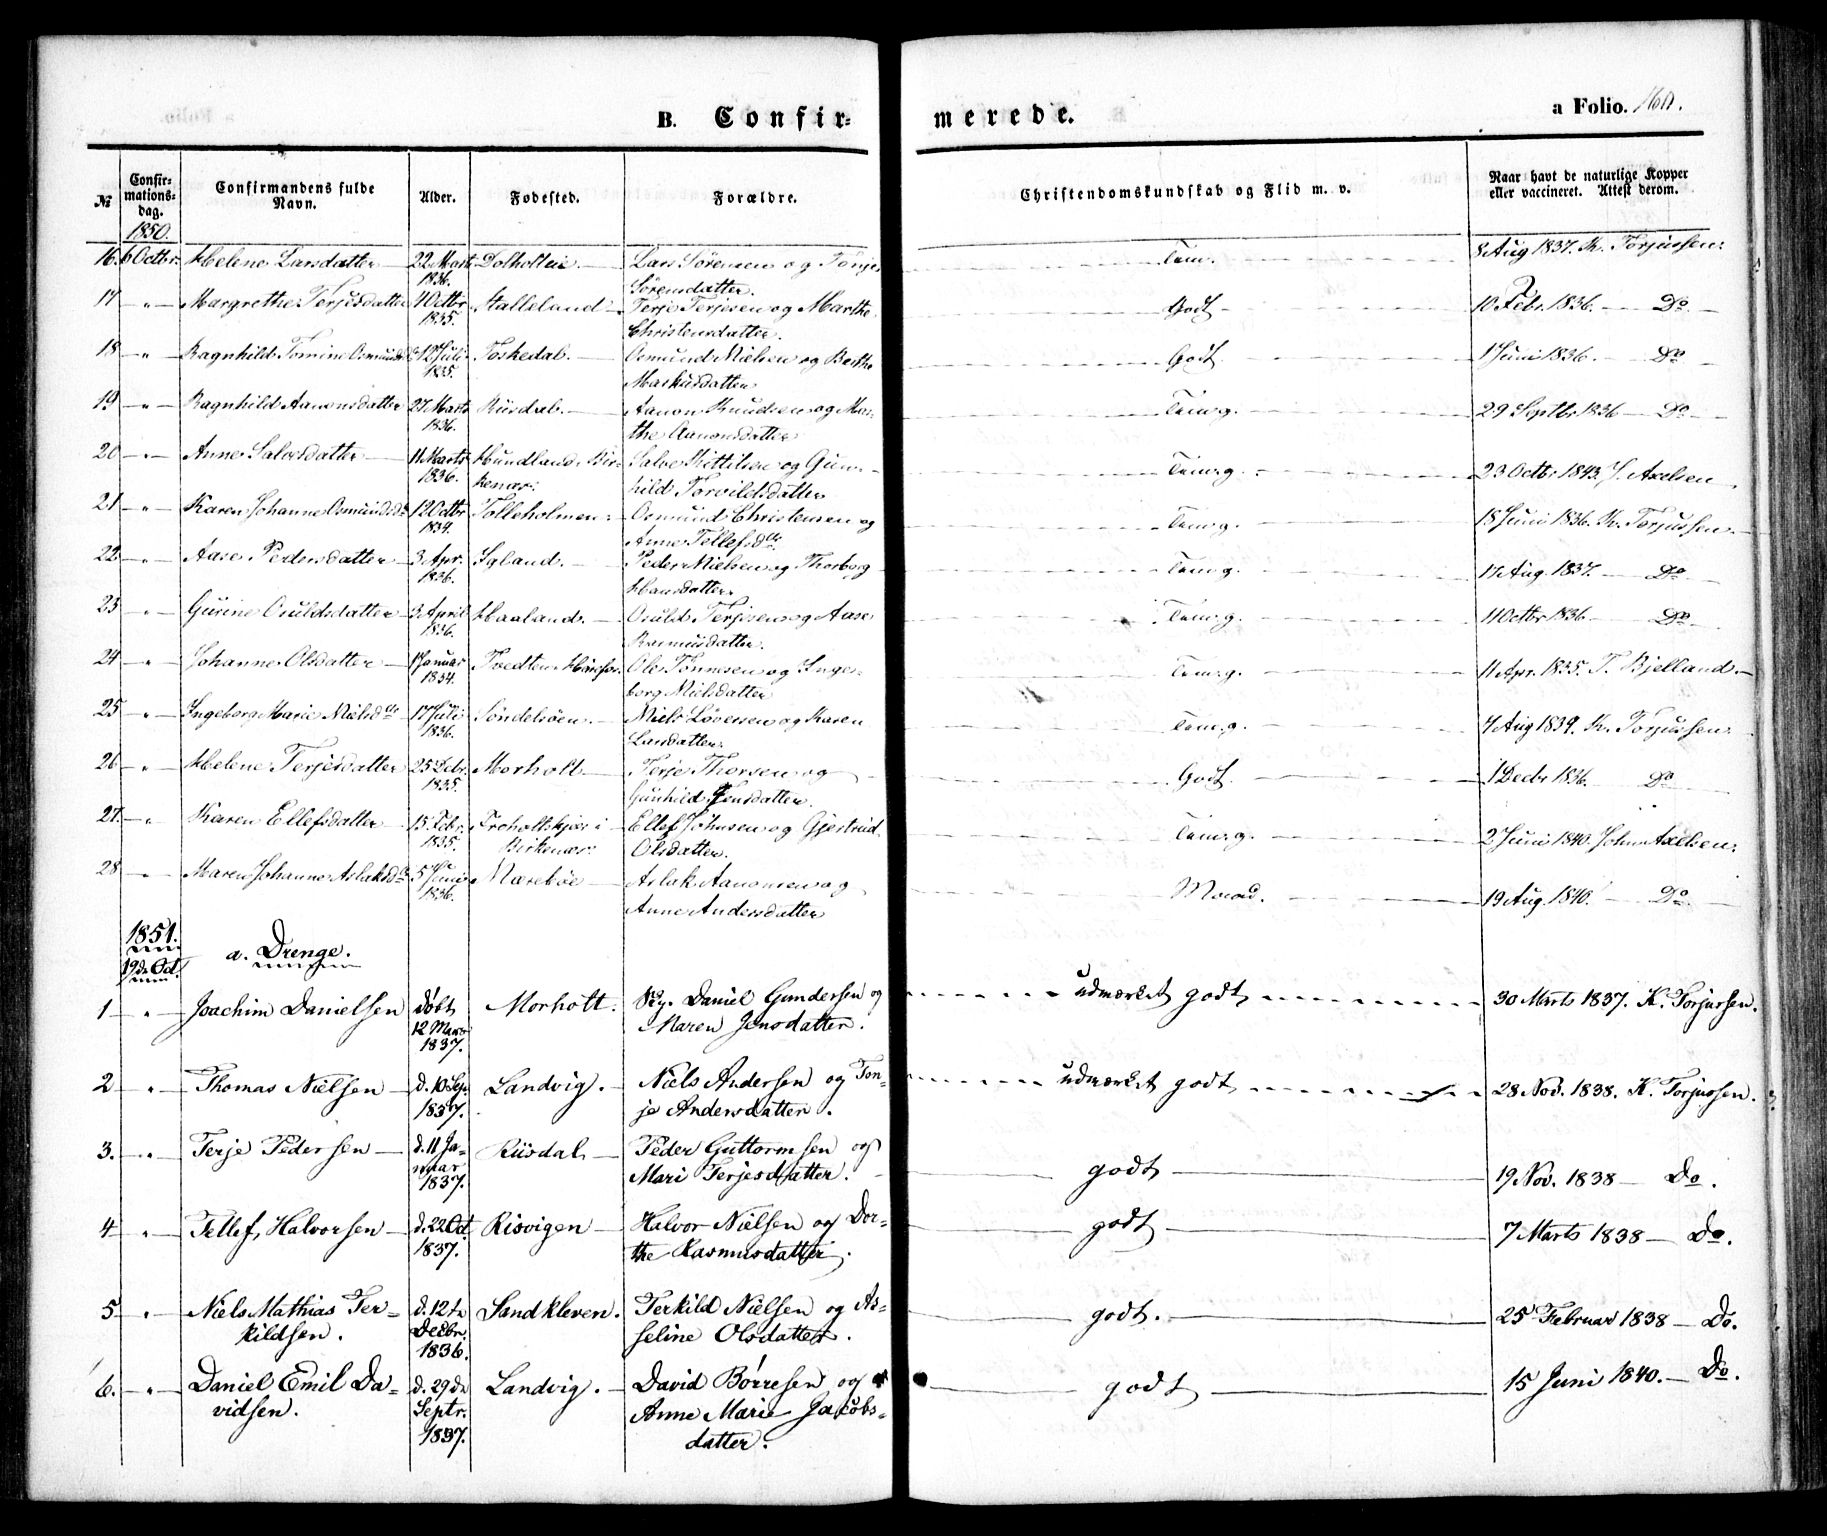 B. Confir- merede. a Folio. 160.
№ Confir-mations-dag. Confirmandens fulde Navn. Alder. Fødested. Forældre. Christendomskundskab og Flid m. v. Naar havt de naturlige Kopper eller vaccineret. Attest derom.
1850.
16. 6 Octbr. Helene Larsdatter 22 Marts Dolholtei Lars Sørensen og Tonje Tem. 8 Aug 1837. K. Torjussen.
1836. Sørensdatter.
17 " Margrethe Terjesdatter 7 Octbr Stalleland Terje Terjesen og Marthe Godt 10 Febr. 1836. Do
1835. Christensdatter.
18 " Ragnhild Tomine Osmundsd 12 Juli Toskedal. Osmund Nielsen og Berthe Godt 1 Juni 1836. Do
1835. Markusdatter
19 " Ragnhild Aanonsdatter 27 Marts Riisdal. Aanon Knudsen og Mar- Tem. g. 29 Septbr 1836 Do
1836. the Aanonsdatter
20 " Anne Salvesdatter 11 Marts Hundland, Bir- Salve Kittilsen og Gun- Tem. g. 23 Octbr 1843. J. Axelsen
1836. kenæs. hild Torvildsdatter
21 " Karen Johanne Osmundsdr 12 Octbr Tolleholmen Osmund Christensen og Tem. g. 18 Juni 1836. K. Torjussen
1834. Anne Tellefsdtr
22 " Aase Pedersdatter 3 Apr. Igland. Peder Nielsen og Thorborg Tem. g. 17 Aug. 1837. Do
1836. Hansdatter
23 " Gurine Osuldsdatter 3 April Haaland. Osuld Terjesen og Aase Tem. g. 11 Octbr 1836 Do
1836. Rasmusdatter.
24 " Johanne Olsdatter 1 Januar Tvedten Ole Tønnesen og Inge- Tem. g. 11 Apr. 1835. T. Bjelland.
1834. borg Nielsdatter
25 " Ingeborg Marie Nielsdtr 17 Juli Søndelsøen. Niels Løversen og Karen Tem. g. 7 Aug 1839. K. Torjussen
1836. Larsdatter.
26 " Helene Terjesdatter 25 Febr. Morholt Terje Thorsen og Godt. 1 Decbr 1836. Do
1835. Gunhild Jensdatter.
27. " Karen Ellefsdatter 15 Febr. Troholtskjær i Ellef Johnsen og Gjertrud Tem. g. 2 Juni 1840. John Axelsen.
1835. Birkenæs. Olsdatter.
28 " Maren Johanne Aslaksdr 5 Juni Mærebøe Aslak Aanonsen og Maad. 19 Aug. 1840. Do
1836. Anne Andersdatter
1851.
19de Oct. a. Drenge.
1 " Joachim Danielsen døbt Morholt. Daniel Gundersen og udmærket godt 30 Marts 1837. K. Torjussen.
12 Marts Maren Jensdatter.
1837.
2 " Thomas Nielsen d. 10 Sep. Landvig. Niels Andersen og Ton- udmærket godt 28 Nov. 1838. K. Torjussen.
1837. je Andersdatter.
3. " Terje Pedersen d. 11 Ja- Riisdal Peder Guttormsen og godt 19 Nov. 1838 Do.
nuar Mari Terjesdatter.
1837.
4 " Tellef Halvorsen d. 22 Oct. Risvigen Halvor Nielsen og Dor- godt 7 Marts 1838 Do.
1837. the Rasmusdatter.
5 " Niels Mathias Ter- d. 12te Sandkleven. Terkild Nielsen og As- godt. 25 Februar 1838 Do.
kildsen. Decbr. seline Olsdatter.
1836.
6. " Daniel Emil Da- d. 29de Landvig. David Børresen og godt 15 Juni 1840. Do.
vidsen. Septr. Anne Marie Jacobs-
1837. datter.